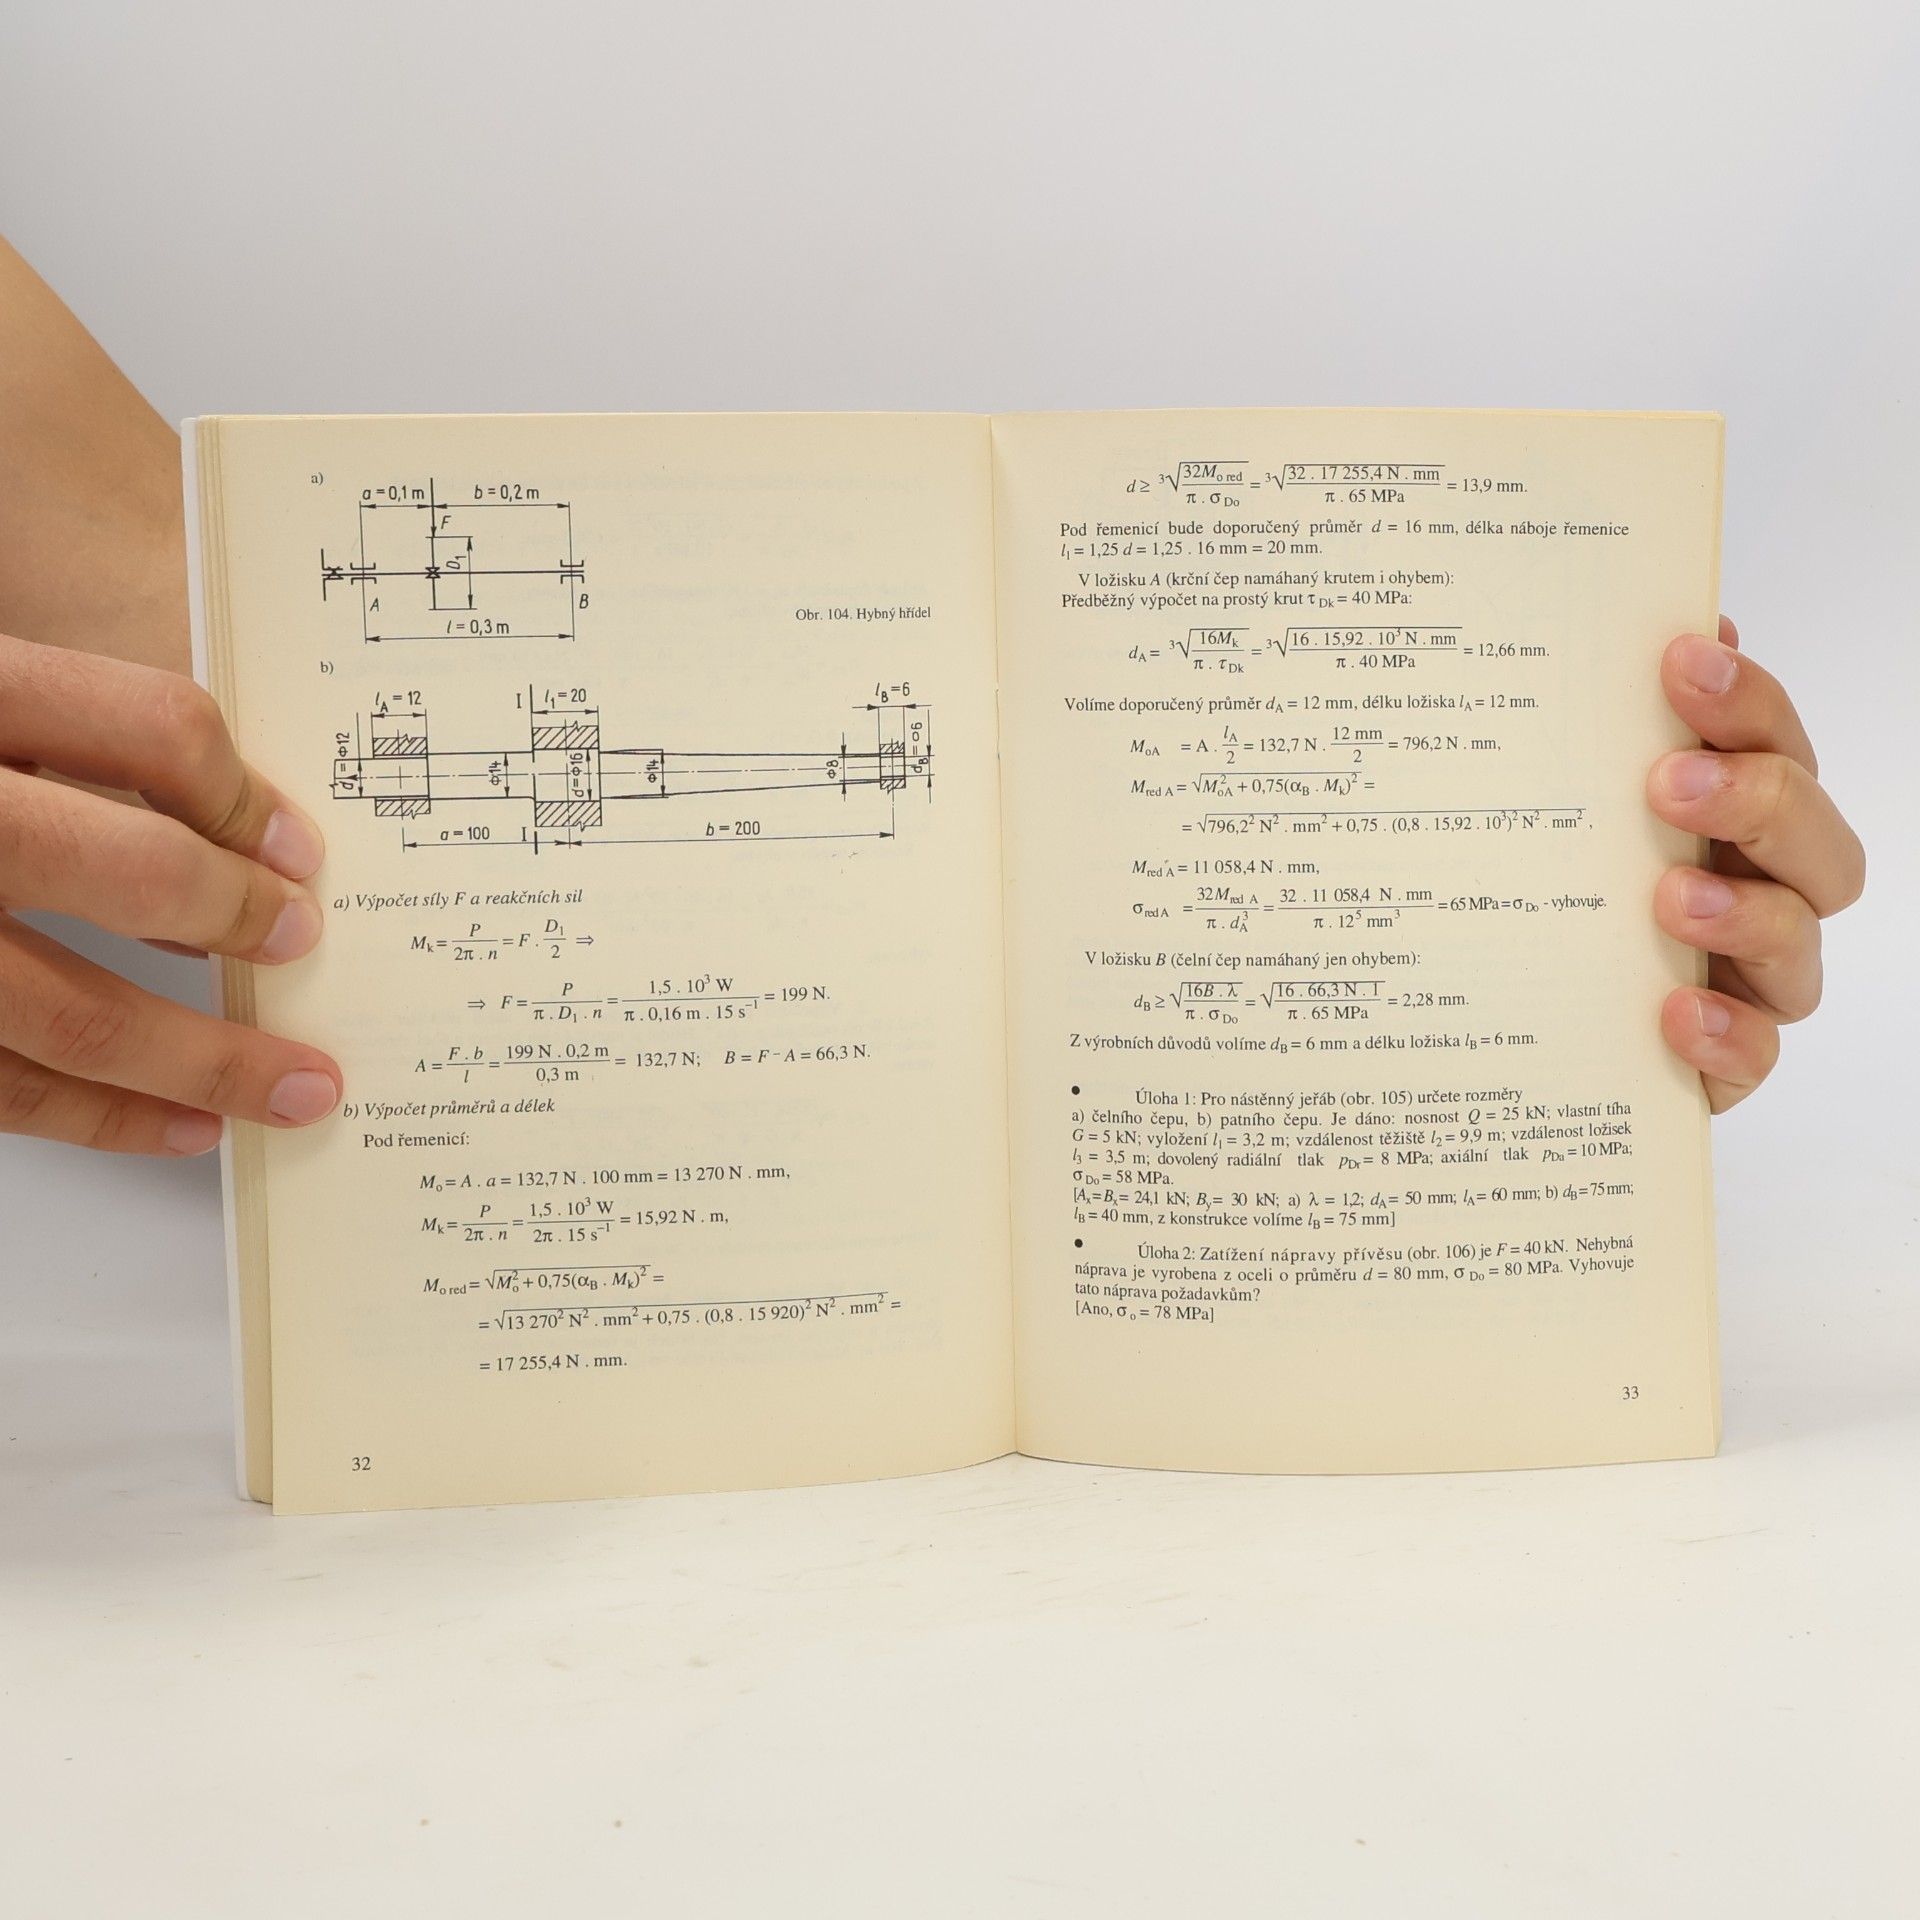 a)
a = 0,1 m
b = 0,2 m
F
D₁
A
B
l = 0,3 m
Obr. 104. Hybný hřídel
b)
l_A = 12
I
l₁ = 20
l_B = 6
d = ϕ12
ϕ14
d = ϕ16
ϕ14
ϕ8
a = 100
I
b = 200
a) Výpočet síly F a reakčních sil
M_k = P / (2π . n) = F . D₁/2 ⇒
⇒ F = P / (π . D₁ . n) = 1,5 . 10³ W / (π . 0,16 m . 15 s⁻¹) = 199 N.
A = F . b / l = 199 N . 0,2 m / 0,3 m = 132,7 N; B = F - A = 66,3 N.
b) Výpočet průměrů a délek
Pod řemenicí:
M_o = A . a = 132,7 N . 100 mm = 13 270 N . mm,
M_k = P / (2π . n) = 1,5 . 10³ W / (2π . 15 s⁻¹) = 15,92 N . m,
M_o red = √(M_o² + 0,75(α_B . M_k)²) =
= √(13 270² N² . mm² + 0,75 . (0,8 . 15 920)² N² . mm²) =
= 17 255,4 N . mm.
32
d ≥ ³√(32M_o red / (π . σ_Do)) = ³√(32 . 17 255,4 N . mm / (π . 65 MPa)) = 13,9 mm.
Pod řemenicí bude doporučený průměr d = 16 mm, délka náboje řemenice
l₁ = 1,25 d = 1,25 . 16 mm = 20 mm.
V ložisku A (krční čep namáhaný krutem i ohybem):
Předběžný výpočet na prostý krut τ_Dk = 40 MPa:
d_A = ³√(16M_k / (π . τ_Dk)) = ³√(16 . 15,92 . 10³ N . mm / (π . 40 MPa)) = 12,66 mm.
Volíme doporučený průměr d_A = 12 mm, délku ložiska l_A = 12 mm.
M_oA = A . l_A/2 = 132,7 N . 12 mm/2 = 796,2 N . mm,
M_red A = √(M²_oA + 0,75(α_B . M_k)²) =
= √(796,2² N² . mm² + 0,75 . (0,8 . 15,92 . 10³)² N² . mm²) ,
M_red A = 11 058,4 N . mm,
σ_red A = 32M_red A / (π . d_A³) = 32 . 11 058,4 N . mm / (π . 12⁵ mm³) = 65 MPa = σ_Do - vyhovuje.
V ložisku B (čelní čep namáhaný jen ohybem):
d_B ≥ √(16B . λ / (π . σ_Do)) = √(16 . 66,3 N . 1 / (π . 65 MPa)) = 2,28 mm.
Z výrobních důvodů volíme d_B = 6 mm a délku ložiska l_B = 6 mm.
• Úloha 1: Pro nástěnný jeřáb (obr. 105) určete rozměry
a) čelního čepu, b) patního čepu. Je dáno: nosnost Q = 25 kN; vlastní tíha
G = 5 kN; vyložení l₁ = 3,2 m; vzdálenost těžiště l₂ = 9,9 m; vzdálenost ložisek
l₃ = 3,5 m; dovolený radiální tlak p_Dr = 8 MPa; axiální tlak p_Da = 10 MPa;
σ_Do = 58 MPa.
[A_x = B_x = 24,1 kN; B_y = 30 kN; a) λ = 1,2; d_A = 50 mm; l_A = 60 mm; b) d_B = 75 mm;
l_B = 40 mm, z konstrukce volíme l_B = 75 mm]
• Úloha 2: Zatížení nápravy přívěsu (obr. 106) je F = 40 kN. Nehybná
náprava je vyrobena z oceli o průměru d = 80 mm, σ_Do = 80 MPa. Vyhovuje
tato náprava požadavkům?
[Ano, σ_o = 78 MPa]
33